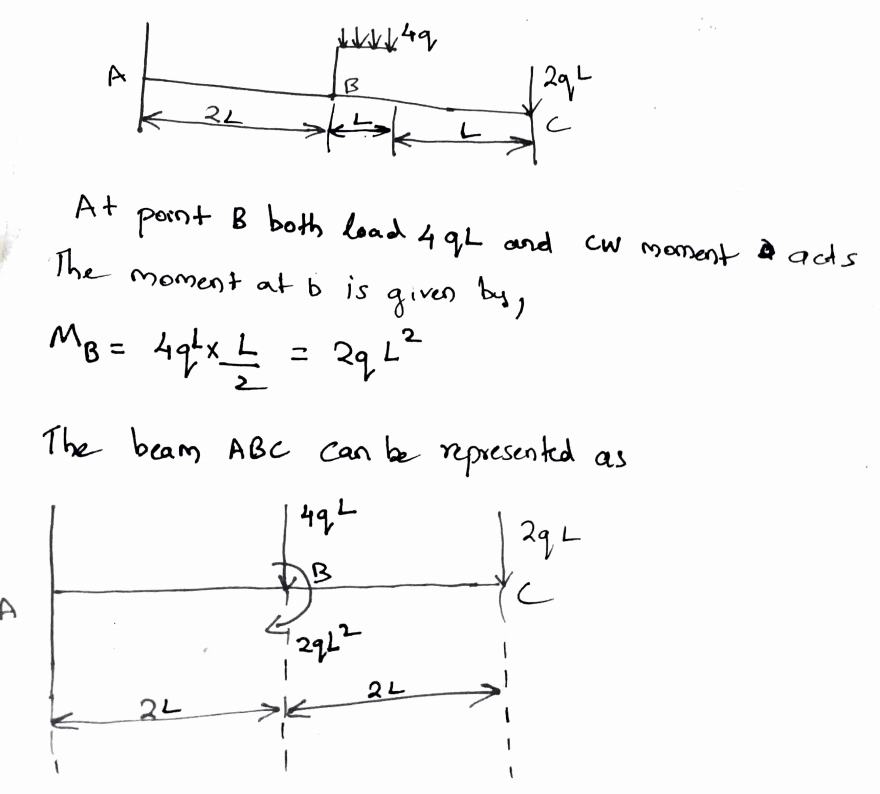 4q
A
B
2qL
2L
L
L
C
At point B both load 4qL and cw moment acts
The moment at b is given by,
M_B = 4qL x L/2 = 2qL²
The beam ABC can be represented as
4qL
2qL
B
A
C
2qL²
2L
2L